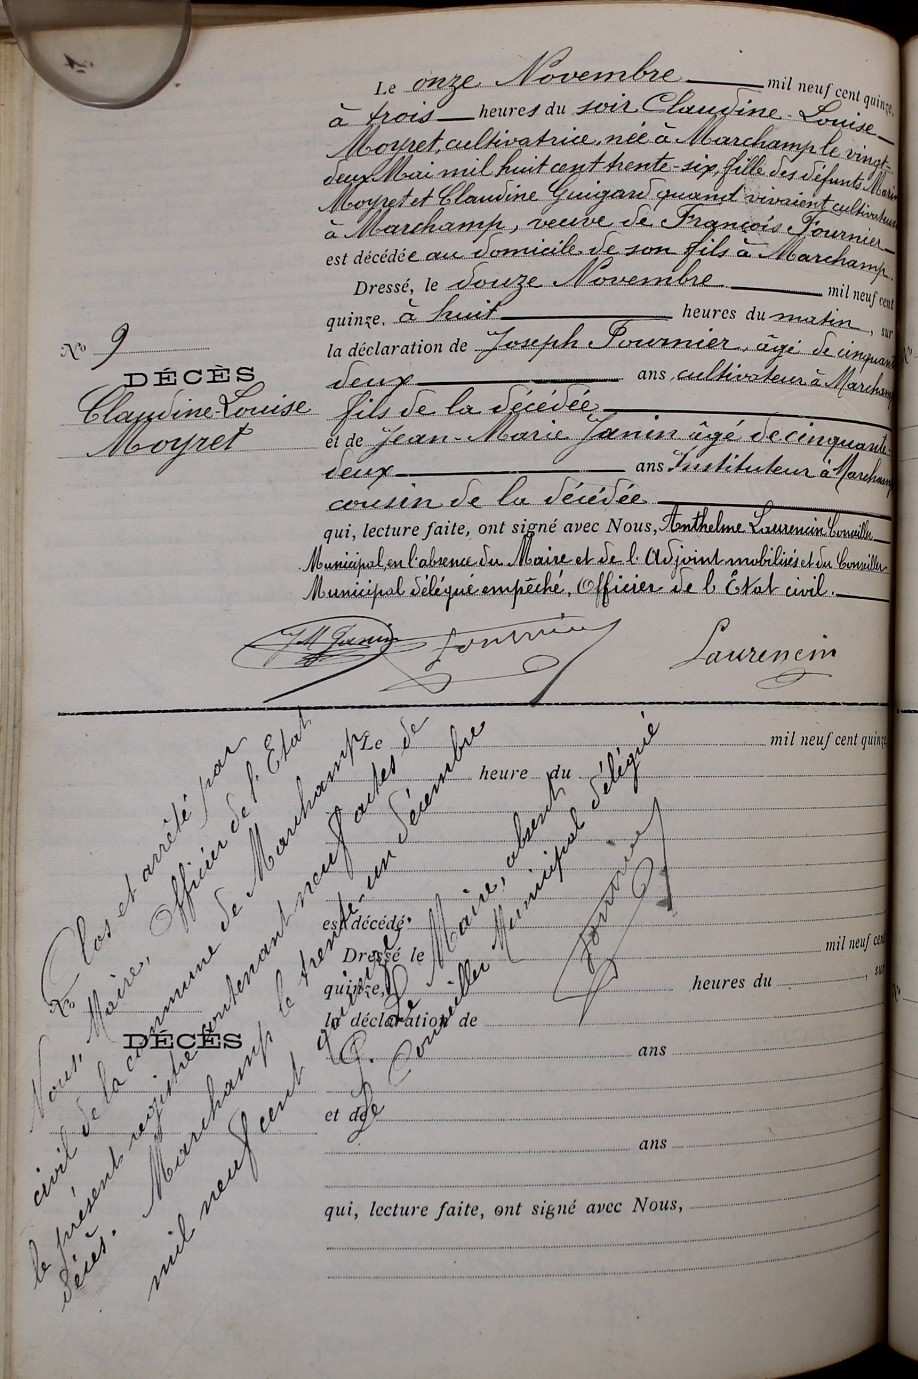 Le onze Novembre mil neuf cent quinze,
à trois heures du soir Claudine-Louise
Moyret, cultivatrice, née à Marchamp le vingt-
deux Mai mil huit cent trente-six, fille des défunts Marin
Moyret et Claudine Guigard quand vivaient cultivateurs
à Marchamp, veuve de François Fournier
est décédée au domicile de son fils à Marchamp.
Dressé, le douze Novembre mil neuf cent
quinze, à huit heures du matin, sur
la déclaration de Joseph Fournier, âgé de cinquante
deux ans, cultivateur à Marchamp
fils de la décédée,
et de Jean-Marie Janin âgé de cinquante-
deux ans Instituteur à Marchamp
cousin de la décédée
qui, lecture faite, ont signé avec Nous, Anthelme Laurencin Conseiller
Municipal, en l'absence du Maire et de l'Adjoint mobilisés et du Conseiller
Municipal délégué empêché, Officier de l'Etat civil.
JM Janin Fournier Laurencin
No 9
DÉCÈS
Claudine-Louise
Moyret
Le mil neuf cent quinze
heure du
est décédé
Dressé le mil neuf cent
quinze, heures du , sur
la déclaration de
ans
et de
ans
qui, lecture faite, ont signé avec Nous,
No
DÉCÈS
Clos et arrêté par
Nous, Maire, Officier de l'Etat
civil de la commune de Marchamp
le présent registre contenant neuf actes de
décès. Marchamp le trente-un décembre
mil neuf cent quinze.
Le Maire, absent
Le Conseiller Municipal délégué
Fournier